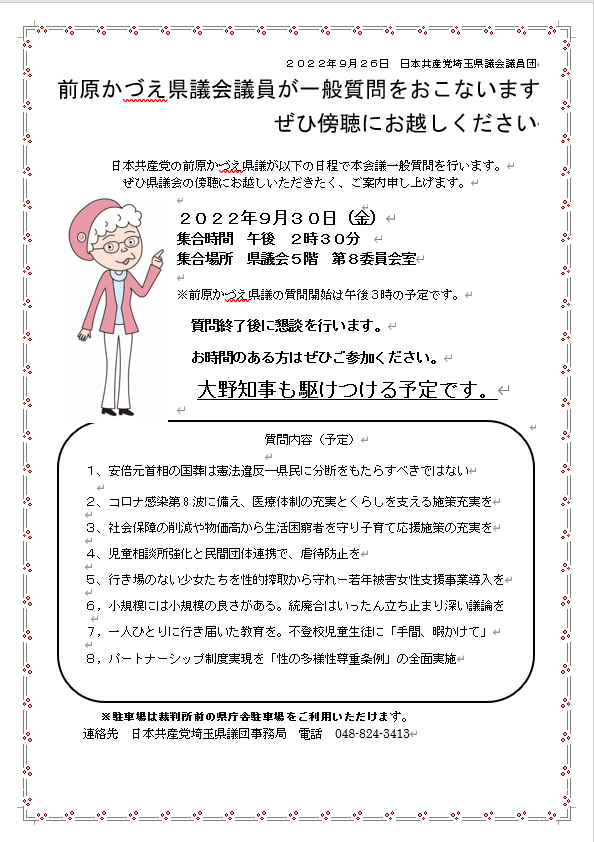 ２０２２年９月２６日　日本共産党埼玉県議会議員団
前原かづえ県議会議員が一般質問をおこないます
ぜひ傍聴にお越しください
日本共産党の前原かづえ県議が以下の日程で本会議一般質問を行います。
ぜひ県議会の傍聴にお越しいただきたく、ご案内申し上げます。
２０２２年９月３０日（金）
集合時間　午後　２時３０分
集合場所　県議会５階　第８委員会室
※前原かづえ県議の質問開始は午後３時の予定です。
質問終了後に懇談を行います。
お時間のある方はぜひご参加ください。
大野知事も駆けつける予定です。
質問内容（予定）
１、安倍元首相の国葬は憲法違反―県民に分断をもたらすべきではない
２、コロナ感染第８波に備え、医療体制の充実とくらしを支える施策充実を
３、社会保障の削減や物価高から生活困窮者を守り子育て応援施策の充実を
４、児童相談所強化と民間団体連携で、虐待防止を
５、行き場のない少女たちを性的搾取から守れー若年被害女性支援事業導入を
６，小規模には小規模の良さがある。統廃合はいったん立ち止まり深い議論を
７，一人ひとりに行き届いた教育を。不登校児童生徒に「手間、暇かけて」
８，パートナーシップ制度実現を「性の多様性尊重条例」の全面実施
※駐車場は裁判所前の県庁舎駐車場をご利用いただけます。
連絡先　日本共産党埼玉県議団事務局　電話　048-824-3413